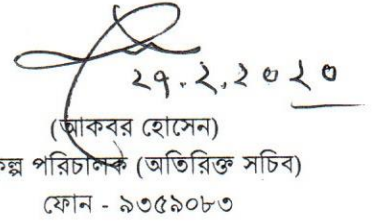 ২৭.২.২০২০
(আকবর হোসেন)
কল্প পরিচালক (অতিরিক্ত সচিব)
ফোন - ৯৩৫৯০৮৩